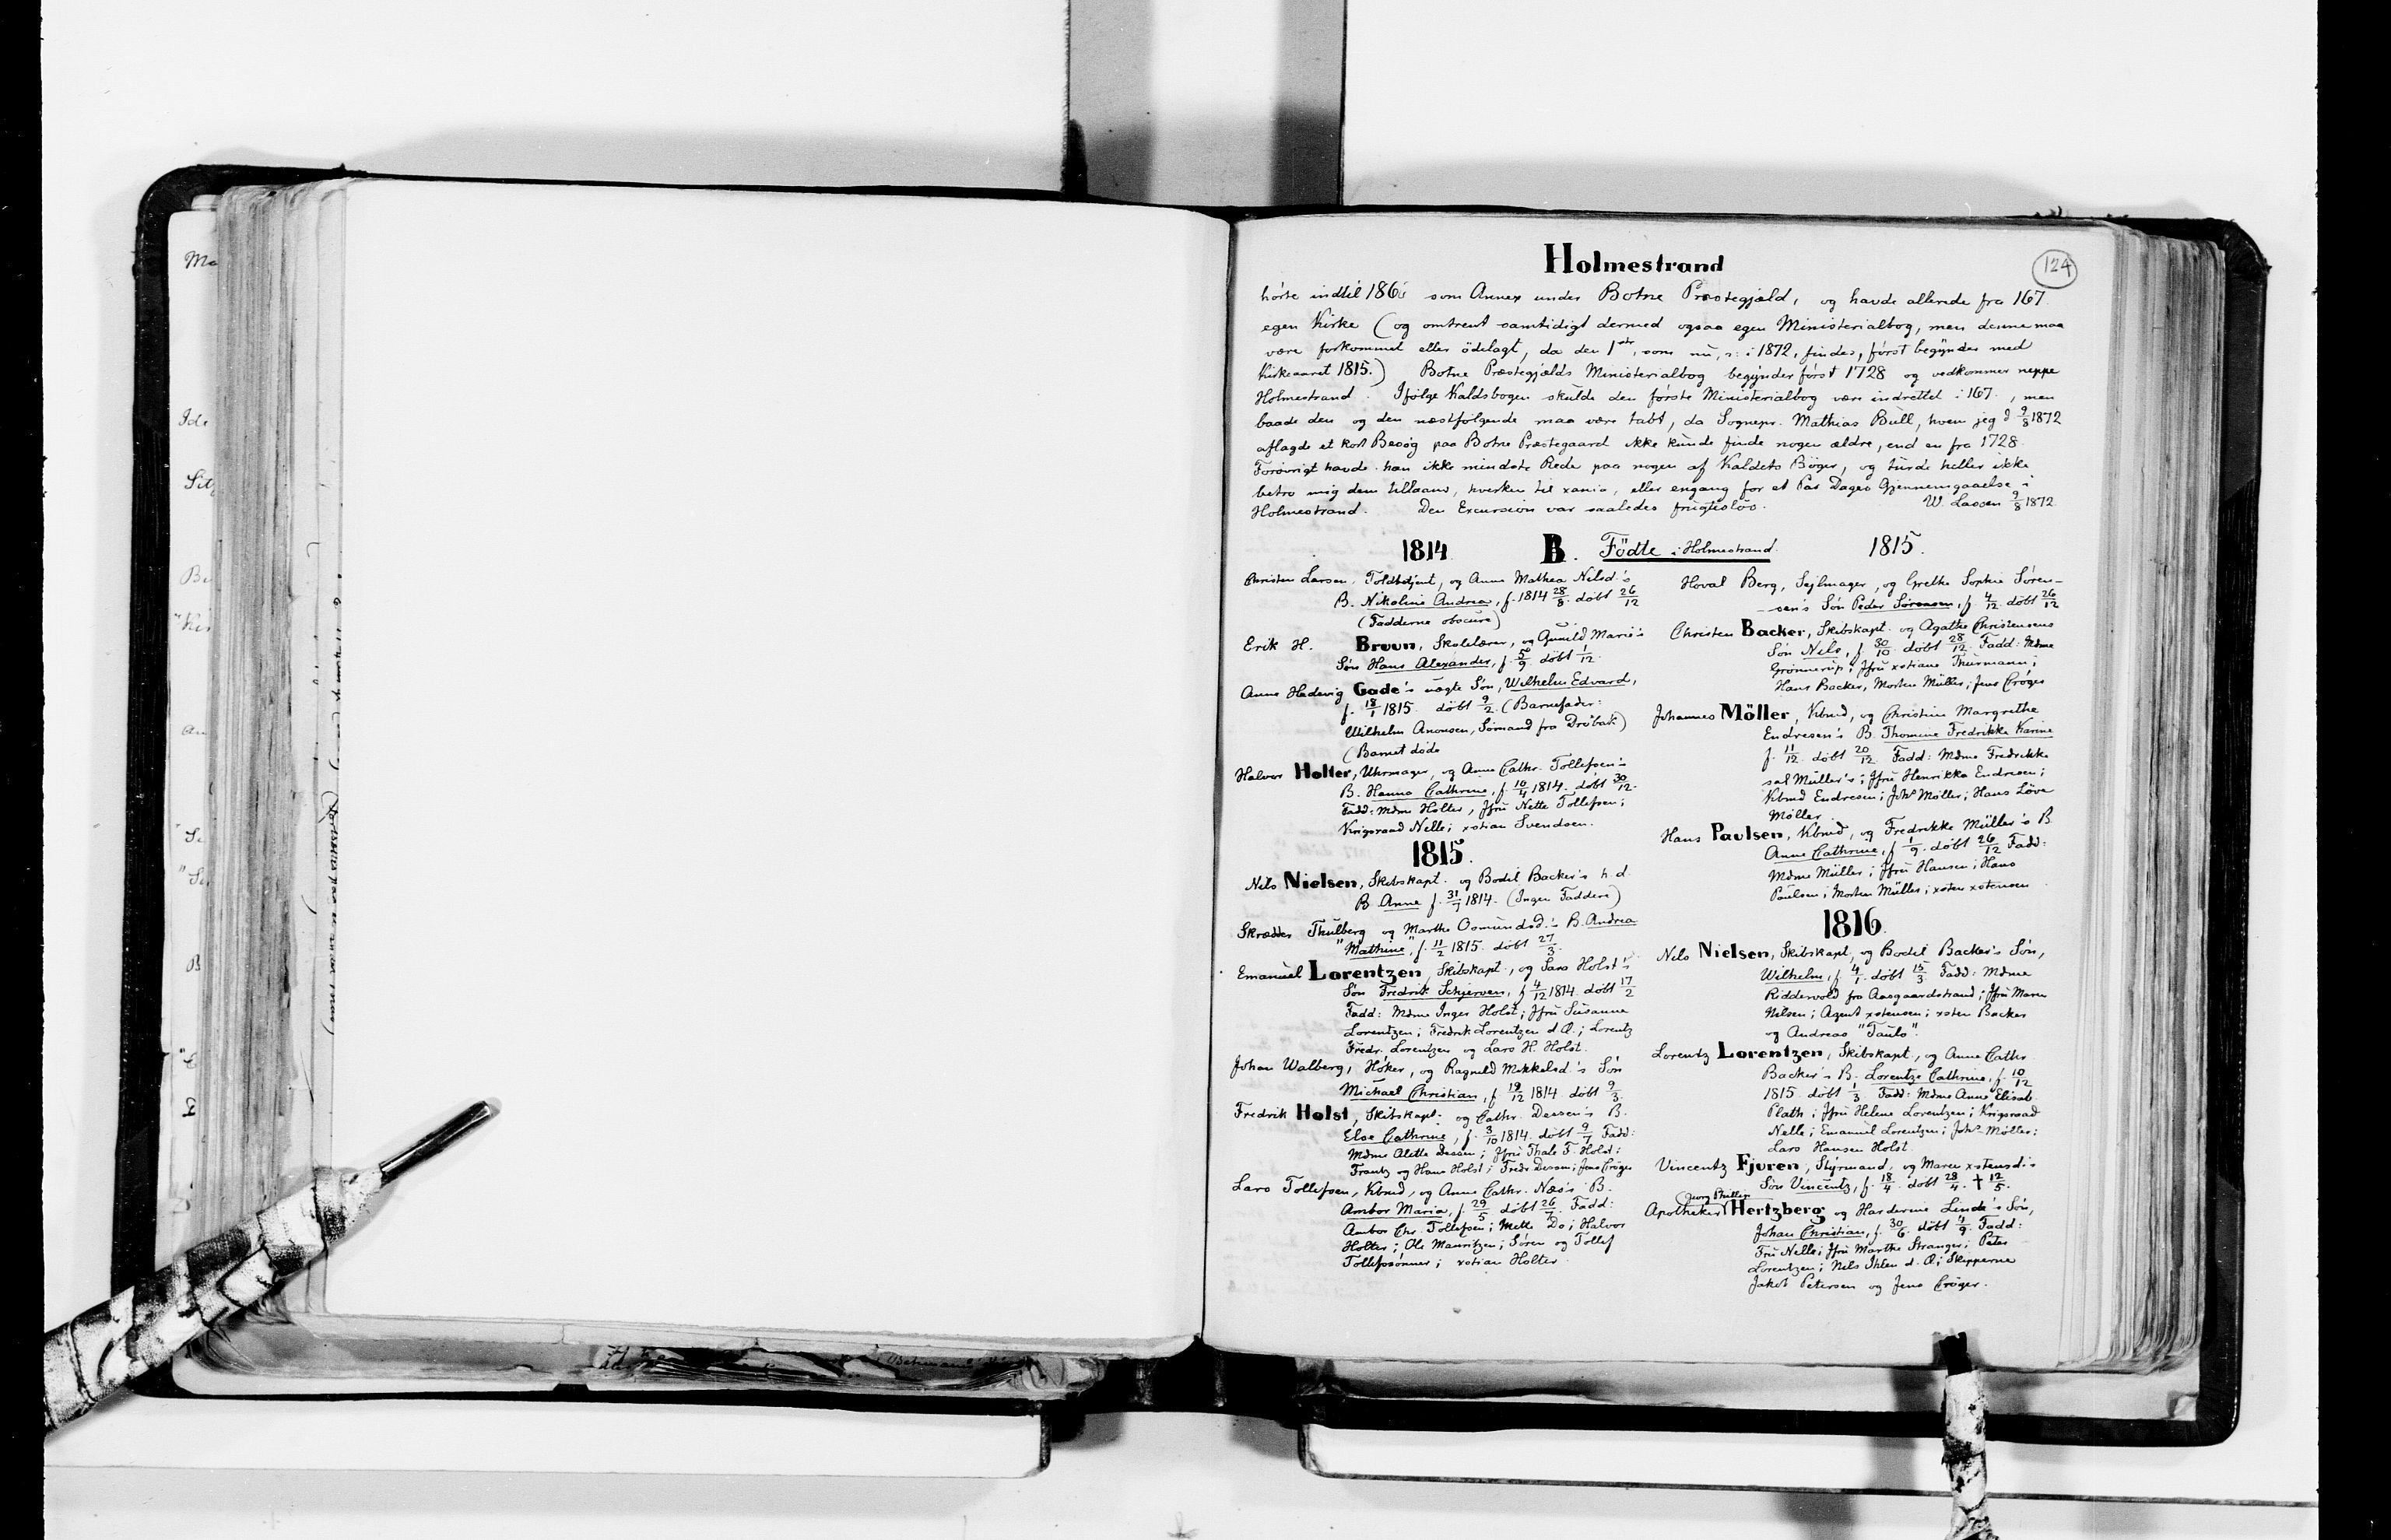 Holmestrand
124
hörte indtil 186 som Annex under Botne Præstegjæld, og havde allerede fra 167
egen Kirke (og omtrent samtidigt dermed ogsaa egen Ministerialbog, men denne maa
være forkommet eller ödelagt, da den 1ste, som nu, ɔ: i 1872, findes, först begynder med
Kirkeaaret 1815.) Botne Præstegjælds Ministerialbog begynder först 1728 og vedkommer neppe
Holmestrand. Ifölge Kaldsbogen skulde den förste Ministerialbog være indrettet i 167 , men
baade den og den næstfölgende maa være tabt, da Sognepr. Mathias Bull, hvem jeg d 9/8 1872
aflagde et kort Besög paa Botne Præstegaard ikke kunde finde nogen ældre, end en fra 1728.
Forövrigt havde han ikke mindste Rede paa nogen af Kaldets Böger, og turde heller ikke
betro mig dem tillaans, hverken til xania, eller engang for et Par Dages Gjennemgaaelse i
Holmestrand. Den Excursion var saaledes frugteslös. W. Lassen 9/8 1872.
1814 B. Födte i Holmestrand. 1815.
Christen Larsen, Toldbetjent, og Anne Mathea Nilsd.'s
B. Nikoline Andrea, f. 1814 28/8. döbt 26/12
(Fadderne obscure)
Erik H. Bruun, Skolelærer, og Gunild Marie's
Sön Hans Alexander, f. 5/9 döbt 1/12.
Anne Hedevig Gade's uægte Sön, Wilhelm Edvard,
f. 18/1 1815. döbt 9/2. (Barnefader:
Wilhelm Anonsen, Sömand fra Dröbak)
(Barnet döde
Halvor Holter, Uhrmager, og Anne Cathr. Tollefsen's
B. Hanna Cathrine, f. 10/4 1814. döbt 30/12.
Fadd: Mdme Holter, Jfru Nette Tollefsen;
Krigsraad Nelle; xstian Svendsen.
1815.
Nils Nielsen, Skibskapt. og Bodil Backer's h. d.
B. Anne f. 31/7 1814. (Ingen Faddere)
Skrædder Thulberg og Marthe Osmundsd.'s B. Andrea
"Mathine", f. 11/2 1815. döbt 27/3.
Emanuel Lorentzen, Skibskapt., og Sara Holst's
Sön Fredrik Schjerven, f 4/12 1814. döbt 17/2
Fadd: Mdme Inger Holst; Jfru Susanne
Lorentzen; Fredrik Lorentzen d. Æ.; Lorentz
Fredr. Lorentzen og Lars H. Holst.
Johan Walberg, Höker, og Ragnild Mikkelsd.'s Sön
Michael Christian, f. 19/12 1814. döbt 9/3.
Fredrik Holst, Skibskapt. og Cathr. Dessen's B.
Else Cathrine, f. 3/10 1814. döbt 9/7 Fadd:
Mdme Alette Dessen; Jfru Thale F. Holst;
Frantz og Hans Holst; Fredr Dessen; Jens Cröger
Lars Tollefsen, Kbmd, og Anne Cathr. Næs's B.
Ambor Maria, f. 29/5 döbt 26/7. Fadd:
Ambor Chr. Tollefsen; Mette Do; Halvor
Holter; Ole Mauritzen; Sören og Tollef
Tollefssönner; xstian Holter.
Hoval Berg, Sejlmager, og Grethe Sophie Sören-
-sen's Sön Peder Sörensen, f. 4/12. döbt 26/12
Christen Backer, Skibskapt. og Agathe Christensens
Sön Nils, f. 30/10 döbt 28/12. Fadd: Mdme
Grönnerup; Jfru xstiane Thurmann;
Hans Backer, Morten Müller; Jens Cröger
Johannes Möller, Kbmd, og Christine Margrethe
Endresen's B. Thomine Fredrikke Karine
f. 11/12. döbt 20/12. Fadd: Mdme Fredrikke
sal Müller's; Jfru Henrikka Endresen;
Kbmd Endresen; Johs Möller; Hans Löve
Möller
Hans Paulsen, Kbmd, og Fredrikke Müller's B.
Anne Cathrine, f 1/9. döbt 26/12 Fadd:
Mdme Müller; Jfru Hansen; Hans
Paulsen; Morten Müller; xsten xstensen
1816.
Nils Nielsen, Skibskapt, og Bodil Backer's Sön,
Wilhelm, f. 4/1. döbt 15/3 Fadd: Mdme
Riddervold fra Aasgaardstrand; Jfru Maren
Nilsen; Agent xstensen; xsten Backer
og Andreas "Taulo".
Lorentz Lorentzen, Skibskapt., og Anne Cathr
Backer's B. Lorentze Cathrine, f. 10/12
1815. döbt 1/3 Fadd: Mdme Anne Elisab.
Plath; Jfru Helene Lorentzen; Krigsraad
Nelle; Emanuel Lorentzen; Johs Möller;
Lars Hansen Holst.
Vincentz Fjeren, Styrmand, og Maren xstensd's
Sön Vincentz, f. 18/4. döbt 28/4. † 12/5.
Georg Phillip
Apotheker Hertzberg og Hardevine Linde's Sön,
Johan Christian, f. 30/6 döbt 4/9. Fadd:
Fru Nelle; Jfru Marthe Stranger; Peter
Lorentzen; Nils Ihlen d. Æ; Skipperne
Jakob Petersen og Jens Cröger.